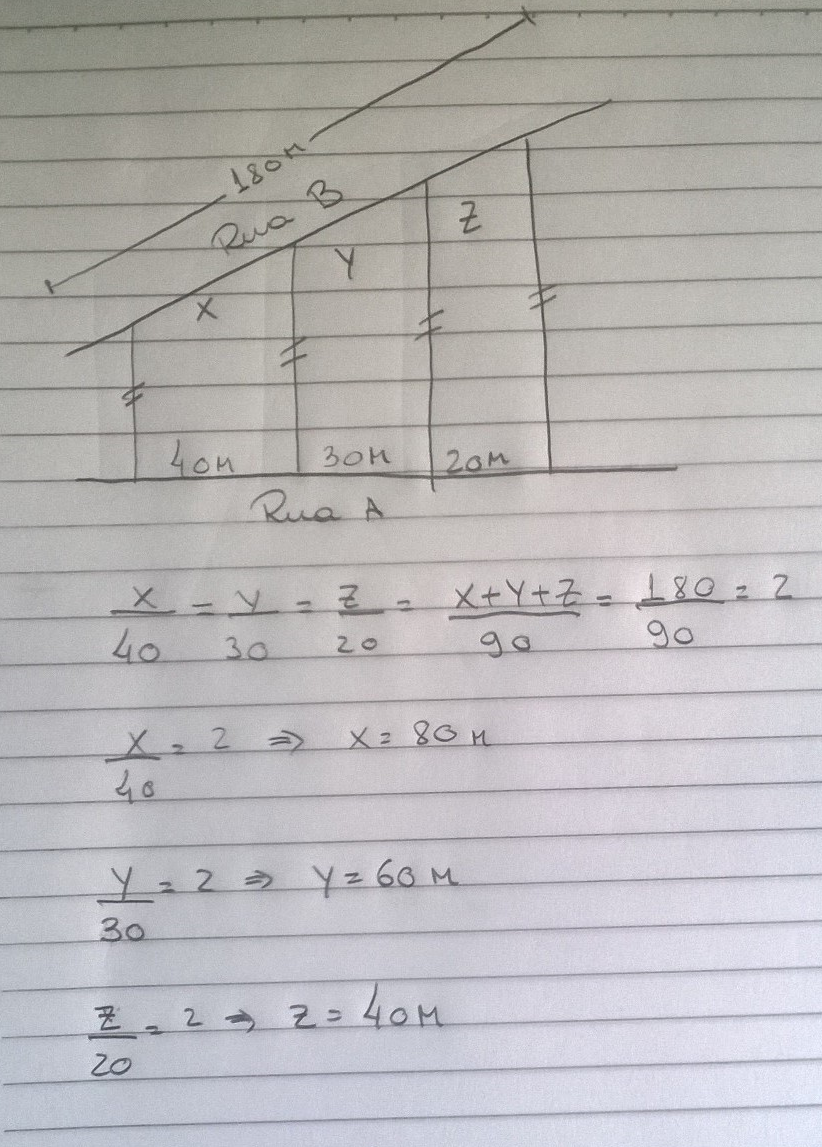 180м
Rua B
Z
Y
X
40м 30м 20м
Rua A
X/40 = Y/30 = Z/20 = X+Y+Z/90 = 180/90 = 2
X/40 = 2 ⇒ X = 80 м
Y/30 = 2 ⇒ Y = 60 м
Z/20 = 2 ⇒ Z = 40м